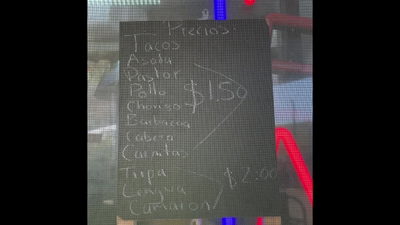 Precios.
Tacos
Asada
Pastor
Pollo
Chorizo
Barbacoa
Cabeza
Carnitas
$1.50
Tripa
Lengua
Camaron
$2.00